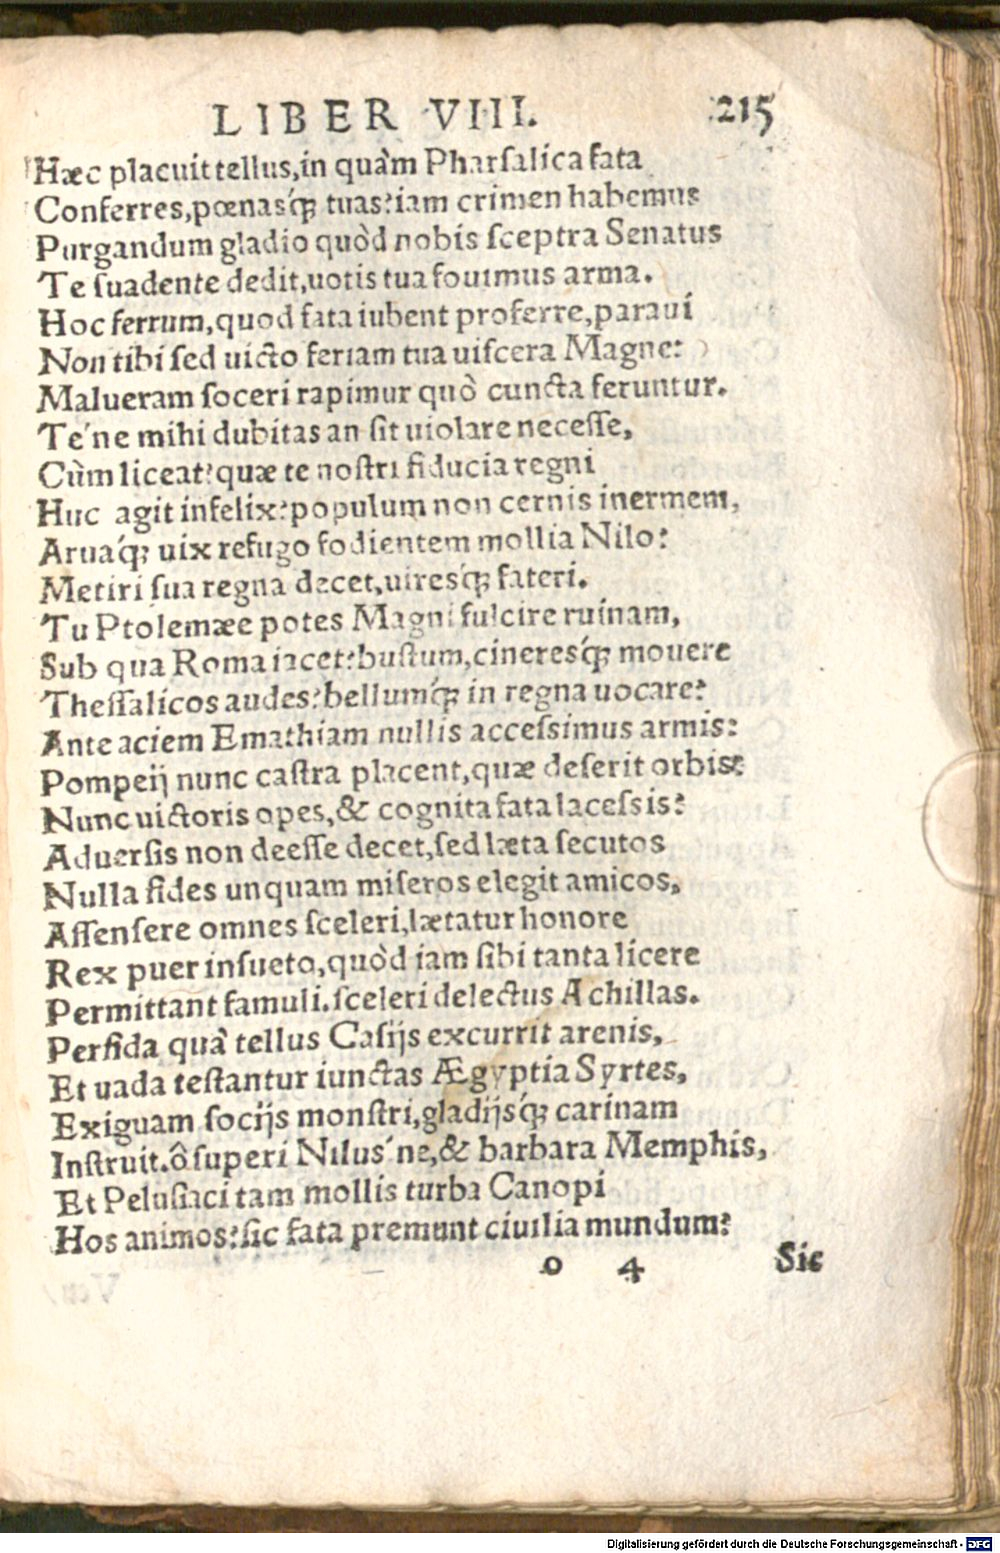 LIBER VIII. 215
Hæc placuit tellus, in quàm Pharsalica fata
Conferres, pœnasq́; tuas? iam crimen habemus
Purgandum gladio quòd nobis sceptra Senatus
Te suadente dedit, uotis tua fouimus arma.
Hoc ferrum, quod fata iubent proferre, paraui
Non tibi sed uicto feriam tua uiscera Magne:
Malueram soceri rapimur quò cuncta feruntur.
Te´ne mihi dubitas an sit uiolare necesse,
Cùm liceat? quæ te nostri fiducia regni
Huc agit infelix? populum non cernis inermem,
Aruaq́; uix refugo fodientem mollia Nilo?
Metiri sua regna decet, uiresq́; fateri.
Tu Ptolemæe potes Magni fulcire ruinam,
Sub qua Roma iacet? bustum, cineresq́; mouere
Thessalicos audes? bellumq́; in regna uocare?
Ante aciem Emathiam nullis accessimus armis:
Pompeij nunc castra placent, quæ deserit orbis?
Nunc uictoris opes, & cognita fata lacessis?
Aduersis non deesse decet, sed læta secutos
Nulla fides unquam miseros elegit amicos,
Assensere omnes sceleri, lætatur honore
Rex puer insueto, quòd iam sibi tanta licere
Permittant famuli. sceleri delectus Achillas.
Perfida quà tellus Casijs excurrit arenis,
Et uada testantur iunctas Ægyptia Syrtes,
Exiguam socijs monstri, gladijsq́; carinam
Instruit. ô superi Nilus´ne, & barbara Memphis,
Et Pelusiaci tam mollis turba Canopi
Hos animos? sic fata premunt ciuilia mundum?
o 4 Sic
Digitalisierung gefördert durch die Deutsche Forschungsgemeinschaft - DFG